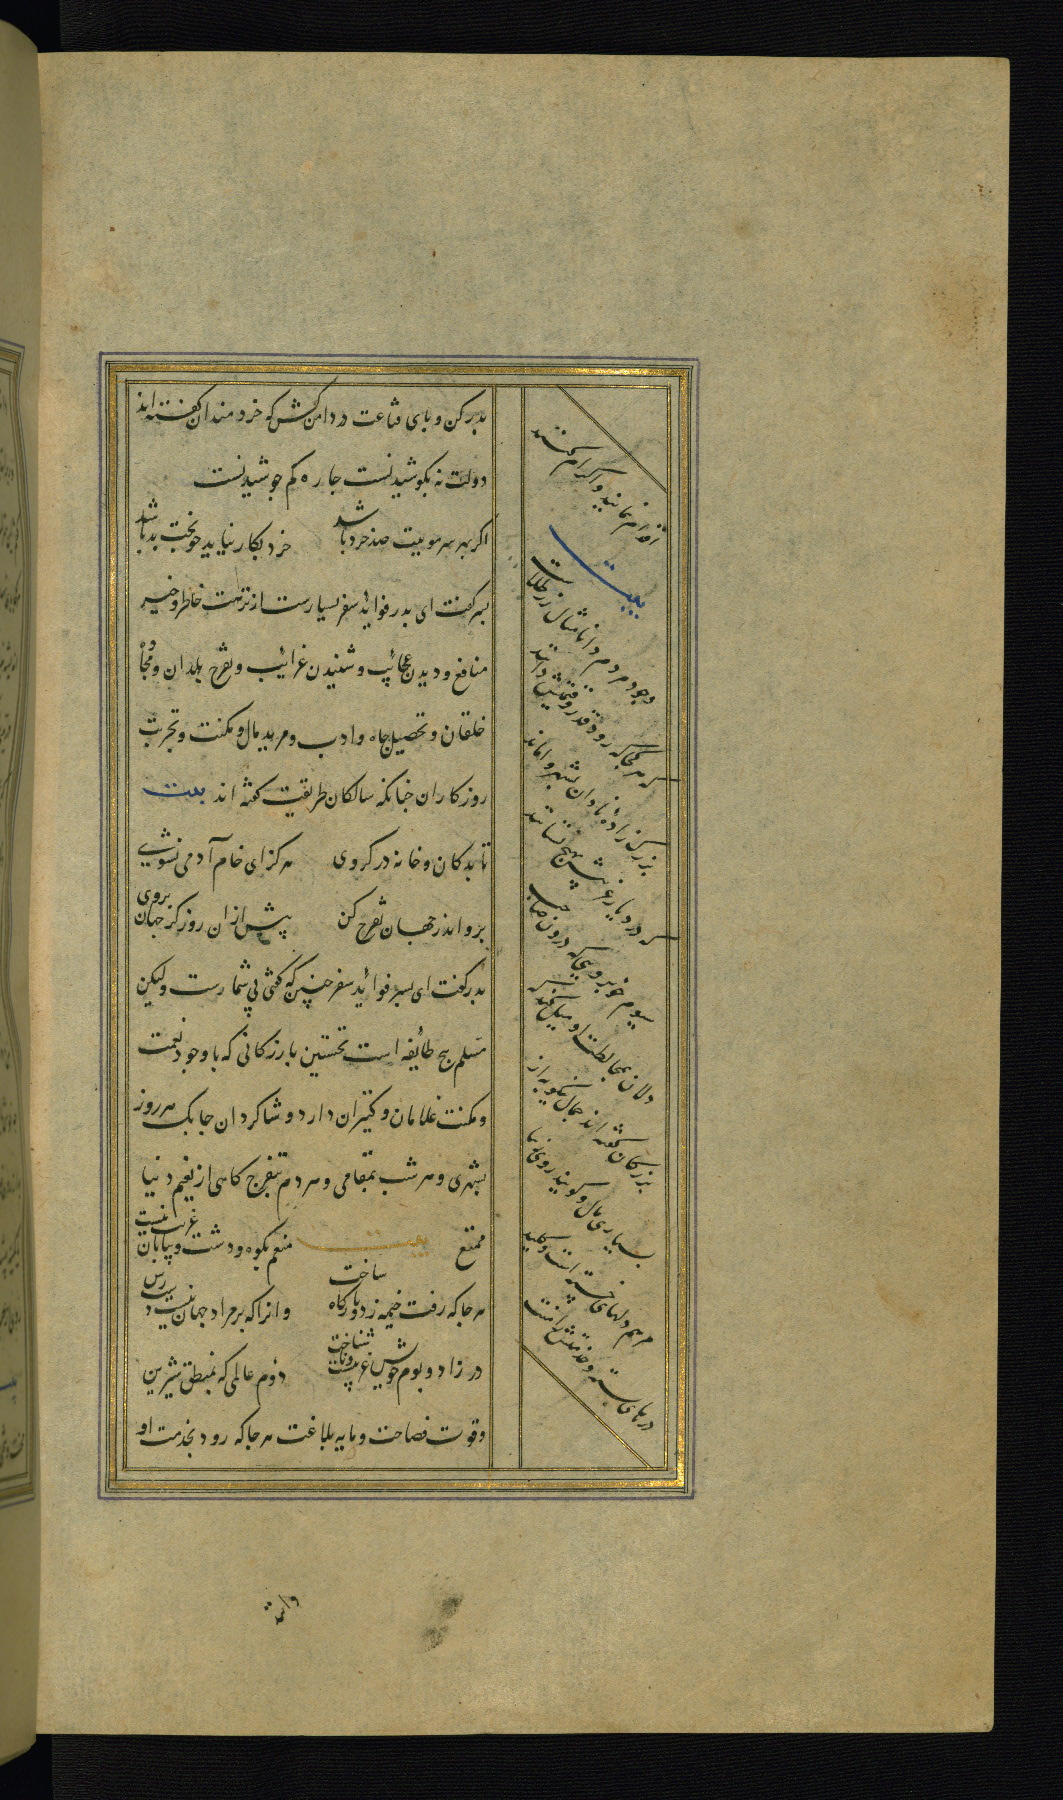 بدر کن و پای قناعت در دامن کش که خردمندان گفته اند
دولت نه بکوشیدنست چاره کم جوشیدنست
اگر بهر سر مویت صد خرد باشد خرد بکار نیاید چو بخت بد باشد
پسر گفت ای پدر فواید سفر بسیارست از نزهت خاطر و خیر
منافع و دیدن عجائب و شنیدن غرائب و تفرج بلدان و مجاورت
خلقان و تحصیل جاه و ادب و مزید مال و مکنت و تجربت
روزکاران چنانکه سالکان طریقت گفته اند بیت
تا بدکان و خانه در گروی هرگز ای خام آدمی نشوی
برو اندر جهان تفرج کن پیش از ان روز کز جهان بروی
پدر گفت ای پسر فوائد سفر چنین که گفتی بی شمارست ولیکن
مسلم پنج طایفه است نخستین بازرگانی که با وجود نعمت
و مکنت غلامان و کنیزان دارد و شاگردان چابک هر روز
بشهری و هر شب بمقامی و هر دم بتفرج گاهی از نعیم دنیا
متمتع بیت منعم بکوه و دشت و بیابان غریب نیست
هر جا که رفت خیمه زد و بارگاه ساخت و انرا که بر مراد جهان نیست دسترس
در زاد و بوم خویش غریبست و ناشناخت دوم عالمی که بمنطق شیرین
و قوت فصاحت و مایه بلاغت هر جا که رود بخدمت او
اقدام نمایند و اکرام کنند
بیت
وجود مردم دانا مثال زر طلاست
که هر کجا که رود قدر و قیمتش دانند
بزرگ زاده نادان بشهر وا ماند
که در دیار غریبش بهیچ نستانند
سیوم خوبرویی که درون صاحب
دلان بمخالطت او میل کند که
بزرگان گفته اند جمال نیکو به از
بسیاری مال و گویند روی زیبا
مرهم دلهای خسته است و کلید
درهای بسته و خدمتش منت
دانند